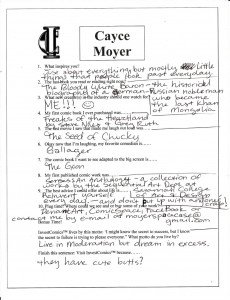 Cayce
Moyer
1. What inspires you?
Just about everything but mostly little
things that people look past everyday.
2. The last book you read or reading right now?
The Bloody White Baron - the historical
biography of a German-Russian nobleman
who became
the last khan
of Mongolia
3. What self creation in the industry needed more
ME!!!
4. My first comic book I ever purchased was...
Freaks of the Heartland
by Steve Niles & Greg Ruth
5. The last movie I saw that made me laugh out loud was
The Seed of Chucky
6. Okay now that I'm laughing, my favorite comedian is...
7. The comic book I want to see adapted to the big screen is...
The Goon
8. My first published comic work was...
Anthology - a collection of
works by the Sequential Art Dept at
Savannah College
of Art & Design
9. The best advice I could offer about life is...
every day - and don't put up with anyone's
crap!
10. Plug time! Where could we see and or buy some of your work?
DeviantArt, ComicSpace, Facebook or
contact me by e-mail at moyerspace@
gmail.com
Bonus Time!
InvestComics lives by this motto: "I might know the secret to success, but I know
the secret to failure is trying to please everyone." What motto do you live by?
Live in moderation but dream in excess.
Finish this sentence: Visit InvestComics because...
they have cute butts?